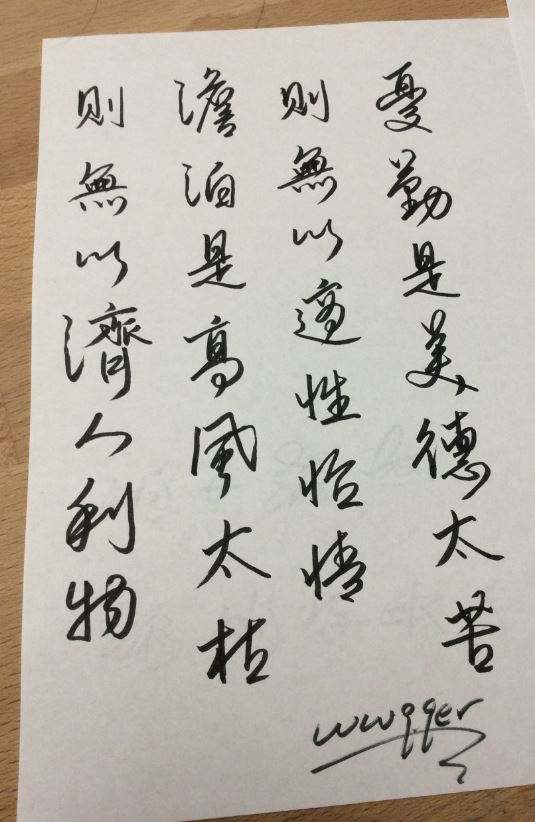 憂勤是美德太苦
則無以適性怡情
澹泊是高風太枯
則無以濟人利物
wwqqer